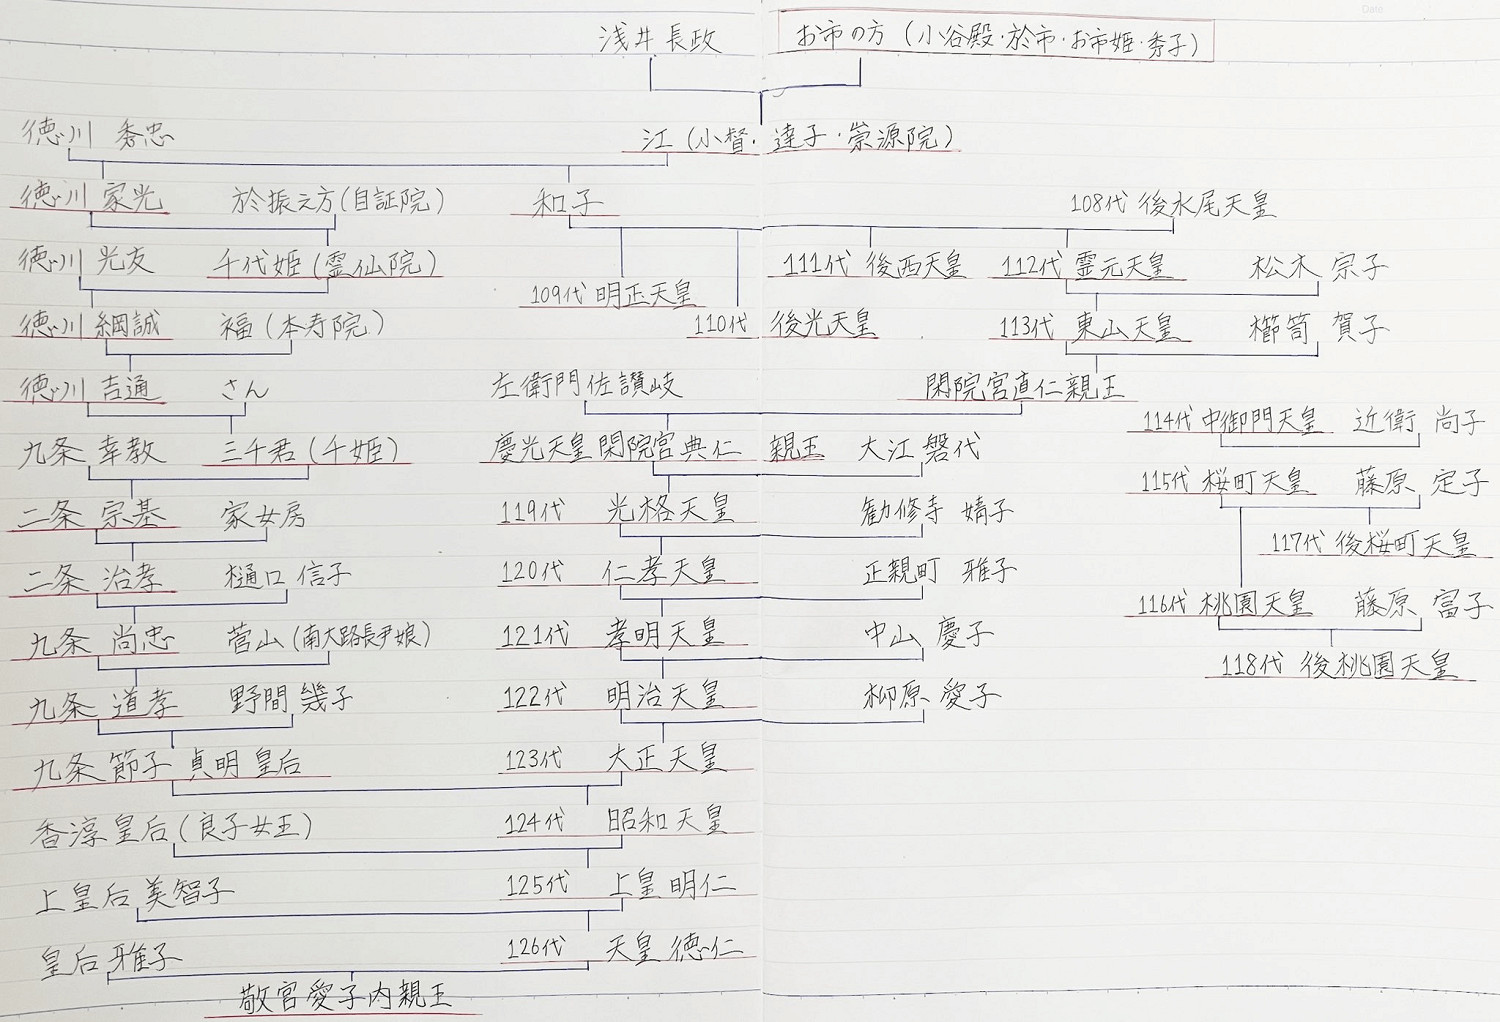 Date
浅井長政 お市の方(小谷殿・於市・お市姫・秀子)
徳川 秀忠 江(小督・達子・崇源院)
徳川 家光 於振之方(自証院) 和子 108代 後水尾天皇
徳川 光友 千代姫(霊仙院) 111代 後西天皇 112代 霊元天皇 松木 宗子
109代 明正天皇
徳川 綱誠 福(本寿院) 110代 後光天皇 113代 東山天皇 櫛笥 賀子
徳川 吉通 さん 左衛門佐讃岐 閑院宮直仁親王
114代 中御門天皇 近衛 尚子
九条 幸教 三千君(千姫) 慶光天皇 閑院宮典仁 親王 大江 磐代
115代 桜町天皇 藤原 定子
二条 宗基 家女房 119代 光格天皇 勧修寺 婧子
117代 後桜町天皇
二条 治孝 樋口 信子 120代 仁孝天皇 正親町 雅子
116代 桃園天皇 藤原 富子
九条 尚忠 菅山(南大路長尹娘) 121代 孝明天皇 中山 慶子
118代 後桃園天皇
九条 道孝 野間 幾子 122代 明治天皇 柳原 愛子
九条 節子 貞明皇后 123代 大正天皇
香淳皇后(良子女王) 124代 昭和天皇
上皇后 美智子 125代 上皇 明仁
皇后 雅子 126代 天皇 徳仁
敬宮愛子内親王